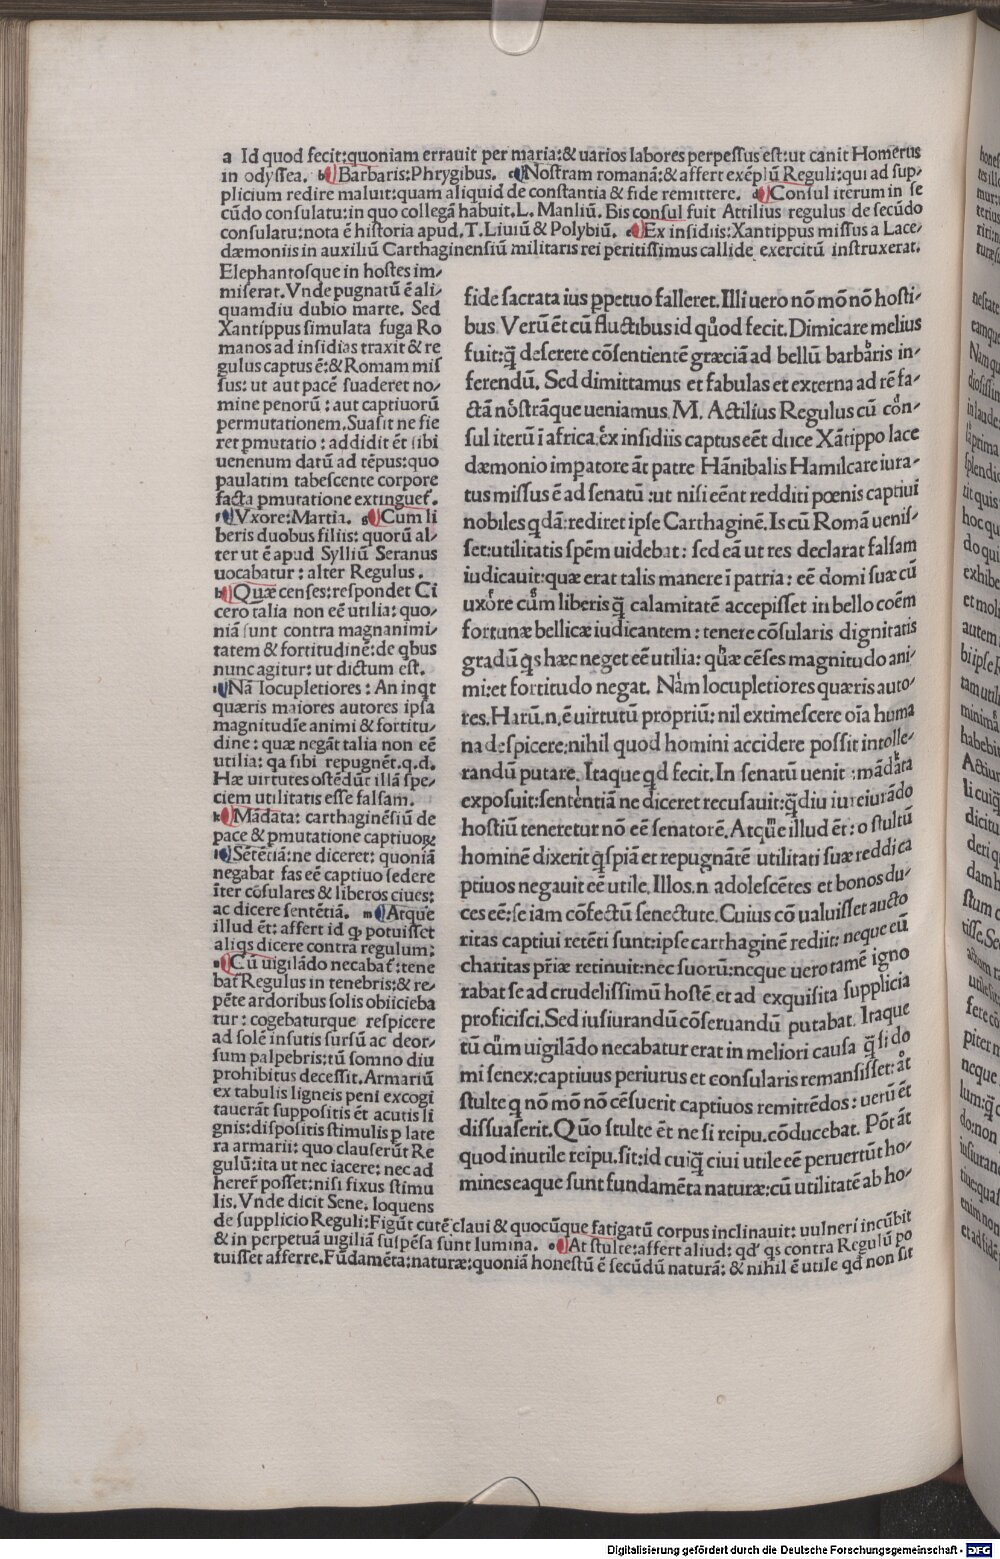 a Id quod fecit:quoniam errauit per maria:& uarios labores perpeſſus eſt:ut canit Homerus
in odyſſea. b Barbaris:Phrygibus. c Noſtram romanā:& affert exēplū Reguli:qui ad ſup-
plicium redire maluit:quam aliquid de conſtantia & fide remittere. d Conſul iterum in ſe
cūdo conſulatu:in quo collegā habuit.L. Manliū. Bis conſul fuit Attilius regulus de ſecūdo
conſulatu:nota ē hiſtoria apud.T.Liuiū & Polybiū. e Ex inſidiis:Xantippus miſſus a Lace-
dæmoniis in auxiliū Carthaginenſiū militaris rei peritiſſimus callide exercitū inſtruxerat.
Elephantoſque in hoſtes im-
miſerat.Vnde pugnatū ē ali-
quamdiu dubio marte. Sed
Xantippus ſimulata fuga Ro
manos ad inſidias traxit & re
gulus captus ē:& Romam miſ
ſus: ut aut pacē ſuaderet no-
mine penorū : aut captiuorū
permutationem.Suaſit ne fie
ret pmutatio : addidit ēt ſibi
uenenum datū ad tēpus:quo
paulatim tabeſcente corpore
facta pmutatione extinguet̄.
f Vxore:Martia. g Cum li
beris duobus filiis: quorū al-
ter ut ē apud Sylliū Seranus
uocabatur : alter Regulus.
h Quæ cenſes:reſpondet Ci
cero talia non eē utilia: quo-
niā ſunt contra magnanimi-
tatem & fortitudinē:de qbus
nunc agitur: ut dictum eſt.
i Nā locupletiores : An inqt
quæris maiores autores ipſa
magnitudīe animi & fortitu-
dine : quæ negāt talia non eē
utilia: qa ſibi repugnēt.q.d.
Hæ uirtutes oſtēdūt illā ſpe-
ciem utilitatis eſſe falſam.
k Mādata: carthaginēſiū de
pace & pmutatione captiuoꝝ
l Sētētiā:ne diceret: quoniā
negabat fas eē captiuo ſedere
īter cōſulares & liberos ciues:
ac dicere ſentētiā. m Atque
illud ēt: affert id ꝙ potuiſſet
aliqs dicere contra regulum:
n Cū uigilādo necabat̄:tene
bat̄ Regulus in tenebris:& re-
pēte ardoribus ſolis obiicieba
tur : cogebaturque reſpicere
ad ſolē inſutis ſurſū ac deor-
ſum palpebris:tū ſomno diu
prohibitus deceſſit.Armariū
ex tabulis ligneis peni excogi
tauerāt ſuppoſitis ēt acutis li
gnis:diſpoſitis ſtimulis p late
ra armarii: quo clauſerūt Re
gulū:ita ut nec iacere: nec ad
herere poſſet:niſi fixus ſtimu
lis.Vnde dicit Sene. loquens
de ſupplicio Reguli:Figūt cutē claui & quocūque fatigatū corpus inclinauit: uulneri incūbit
& in perpetuā uigiliā ſuſpēſa ſunt lumina. o At ſtulte:affert aliud: qd' qs contra Regulū po
tuiſſet afferre.Fūdamēta:naturæ:quoniā honeſtū ē ſecūdū naturā: & nihil ē utile qd non ſit
fide ſacrata ius ꝑpetuo falleret.Illi uero nō mō nō hoſti-
bus. Verū ēt cū fluctibus id quod fecit.Dimicare melius
fuit:q̄ deſerere cōſentientē græciā ad bellū barbaris in-
ferendū. Sed dimittamus et fabulas et externa ad rē fa-
ctā noſtrāque ueniamus. M. Actilius Regulus cū con-
ſul iterū ī africa ex inſidiis captus eēt duce Xātippo lace
dæmonio impatore āt patre Hānibalis Hamilcare iura-
tus miſſus ē ad ſenatū :ut niſi eēnt redditi pœnis captiui
nobiles qdā: rediret ipſe Carthaginē. Is cū Romā ueniſ-
ſet:utilitatis ſpēm uidebat : ſed eā ut res declarat falſam
iudicauit:quæ erat talis manere ī patria : eē domi ſuæ cū
uxore cum liberis q̄ calamitatē accepiſſet in bello coēm
fortunæ bellicæ iudicantem : tenere cōſularis dignitatis
gradū qs hæc neget eē utilia: quæ cēſes magnitudo ani-
mi:et fortitudo negat. Nam locupletiores quæris auto-
res.Harū.n.ē uirtutū propriū: nil extimeſcere oīa huma
na deſpicere:nihil quod homini accidere poſſit intolle-
randū putare. Itaque qd fecit.In ſenatū uenit :mādata
expoſuit:ſententiā ne diceret recuſauit:q̄diu iureiurādo
hoſtiū teneretur nō eē ſenatorē.Atque illud ēt : o ſtultū
hominē dixerit qſpiā et repugnātē utilitati ſuæ reddi ca
ptiuos negauit eē utile.Illos.n adoleſcētes et bonos du-
ces eē:ſe iam cōfectū ſenectute.Cuius cō ualuiſſet aucto
ritas captiui retēti ſunt:ipſe carthaginē rediit: neque eū
charitas pr̄iæ retinuit:nec ſuorū:neque uero tamē igno
rabat ſe ad crudeliſſimū hoſtē et ad exquiſita ſupplicia
proficiſci.Sed iuſiurandū cōſeruandū putabat. Itaque
tū cum uigilādo necabatur erat in meliori cauſa q̄ ſi do
mi ſenex:captiuus periurus et conſularis remanſiſſet: at
ſtulte q nō mō nō cēſuerit captiuos remittēdos : uerū ēt
diſſuaſerit.Quo ſtulte ēt ne ſi reipu.cōducebat. Pōt āt
quod inutile reipu.ſit:id cuiq̄ ciui utile eē peruertūt ho-
mines eaque ſunt fundamēta naturæ:cū utilitatē ab ho-
Digitalisierung gefördert durch die Deutsche Forschungsgemeinschaft - DFG